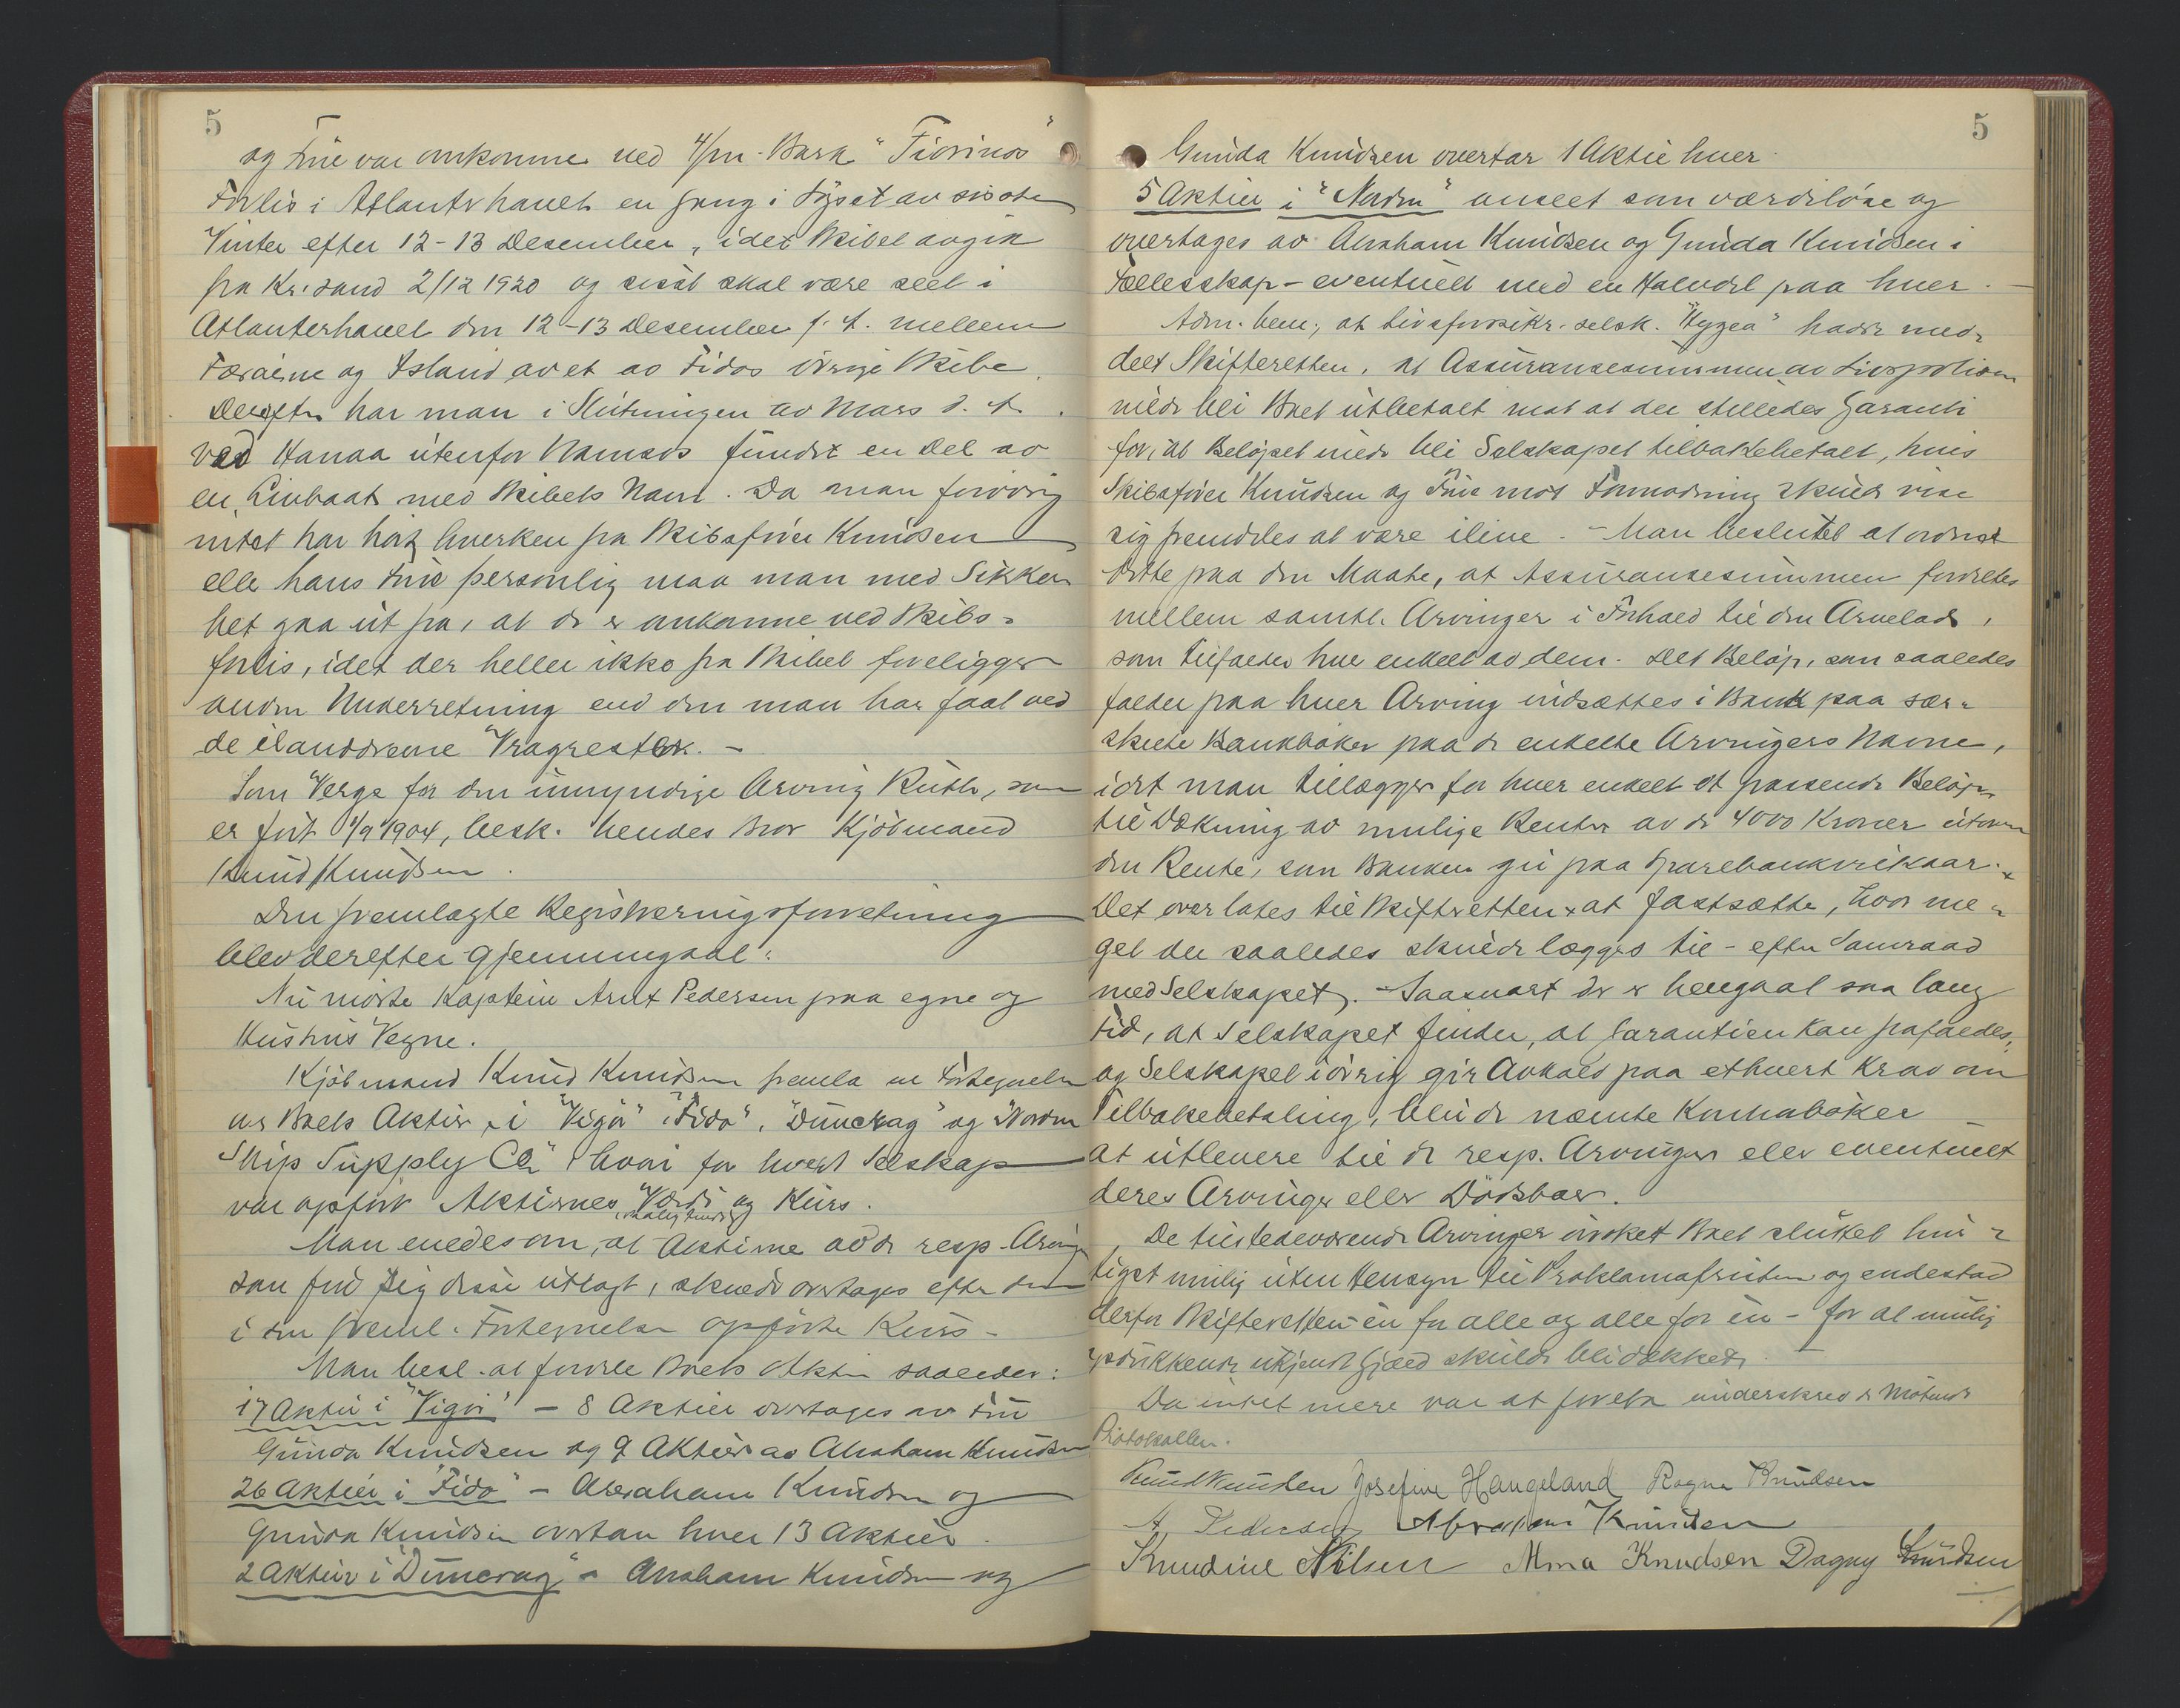 5
og Frue var omkomne ved 4/m. Bark "Fiorinos"
Forlis i Atlanterhavet en gang i Løpet av siste
Vinter efter 12-13 Desember, idet Skibet avgik
fra Kr.sand 2/12 1920 og sisst skal være seet i
Atlanterhavet den 12-13 Desember f. A. mellem
Færøerne og Island av et av Fidos øvrige Skibe.
Derefter har man i Slutningen av Mars d. A.
ved Hanaa utenfor Namsos fundet en Del av
en Livbaat med Skibets Navn. Da man forøvrig
intet har hørt hverken fra Skibsfører Knudsen
eller hans Frue personlig maa man med Sikker
het gaa ut fra, at de er omkomne ved Skibs-
forlis, idet der heller ikke fra Skibet foreligger
anden Underretning end den man har faat ved
de ilanddrevne Vragrester. -
Som Verge for den umyndige Arving Ruth, som
er født 1/9 1904, besk. hendes Bror Kjøbmand
Knud Knudsen.
Den fremlagte Registreringsforretning
blev derefter gjennemgaat:
Nu møtte Kaptein Arnt Pedersen paa egne og
Hustrus Vegne.
Kjøbmand Knud Knudsen fremla en Fortegnelse
over Boets Aktier i "Vigør" "Fido", "Duncrag" og "Norden
Ship Supply Co" hvori for hvert Selskap
var opført Aktiernes Værdi og Kurs.
Man enedes om, at Aktierne av de resp. Arvinger
som fik sig disse utlagt, skulde overtages efter den
i den freml. Fortegnelse opførte Kurs -
Man besl. at fordele Boets Aktier saaledes:
17 Aktier i "Vigør" - 8 Aktier overtages av Fru
Gunda Knudsen og 9 Aktier av Abraham Knudsen
26 Aktier i "Fido" - Abraham Knudsen og
Gunda Knudsen overtar hver 13 Aktier.
2 Aktier i "Duncrag" - Abraham Knudsen og
5
Gunda Knudsen overtar 1 Aktie hver.
5 Aktier i "Norden" anseet som værdiløse og
overtages av Abraham Knudsen og Gunda Knudsen i
Fællesskap - eventuelt med en Halvdel paa hver. -
Adm. bem., at livsforsikr. selsk. "Hygea" hadde med-
delt Skifteretten, at Assuransesummen av Livspolisen
vilde bli Boet utbetalt mot at der stilledes Garanti
for, at Beløpet vilde bli Selskapet tilbakebetalt, hvis
Skibsfører Knudsen og Frue mot Formodning skulde vise
sig fremdeles at være ilive. - Man besluttet at ordne
dette paa den Maate, at Assuransesummen fordeles
mellem samtl. Arvinger i Forhold til den Arvelod,
som tilfalder hver enkelt av dem. Det Beløp, som saaledes
falder paa hver Arving indsættes i Bank paa sær-
skilte Bankbøker paa de enkelte Arvingers Navne,
idet man tillægger for hver enkelt et passende Beløp
til Dækning av mulige Renter av de 4000 Kroner utover
den Rente, som Banken gir paa Sparebankvilkaar. -
Det overlates til Skifteretten at fastsætte, hvor me-
get der saaledes skulde lægges til - efter Samraad
med Selskapet. - Saasnart der er hengaat saa lang
Tid, at Selskapet finder, at Garantien kan frafaldes,
og Selskapet iøvrig gir Avkald paa ethvert Krav om
Tilbakebetaling, blir de nævnte Kontrabøker
at utlevere til de resp. Arvinger eller eventuelt
deres Arvinger eller Dødsboer.
De tilstedeværende Arvinger ønsket Boet sluttet hur-
tigst mulig uten Hensyn til Proklamafristen og indestod
derfor Skifteretten en for alle og alle for en - for at mulig
opdukkende ukjendt Gjæld skulde bli dækket. -
Da intet mere var at foreta underskrev de Møtende
Protokollen.
Knud Knudsen Josefine Haugeland Ragna Knudsen
A. Pedersen Abraham Knudsen
Knudine Nilsen Alma Knudsen Dagny Knudsen